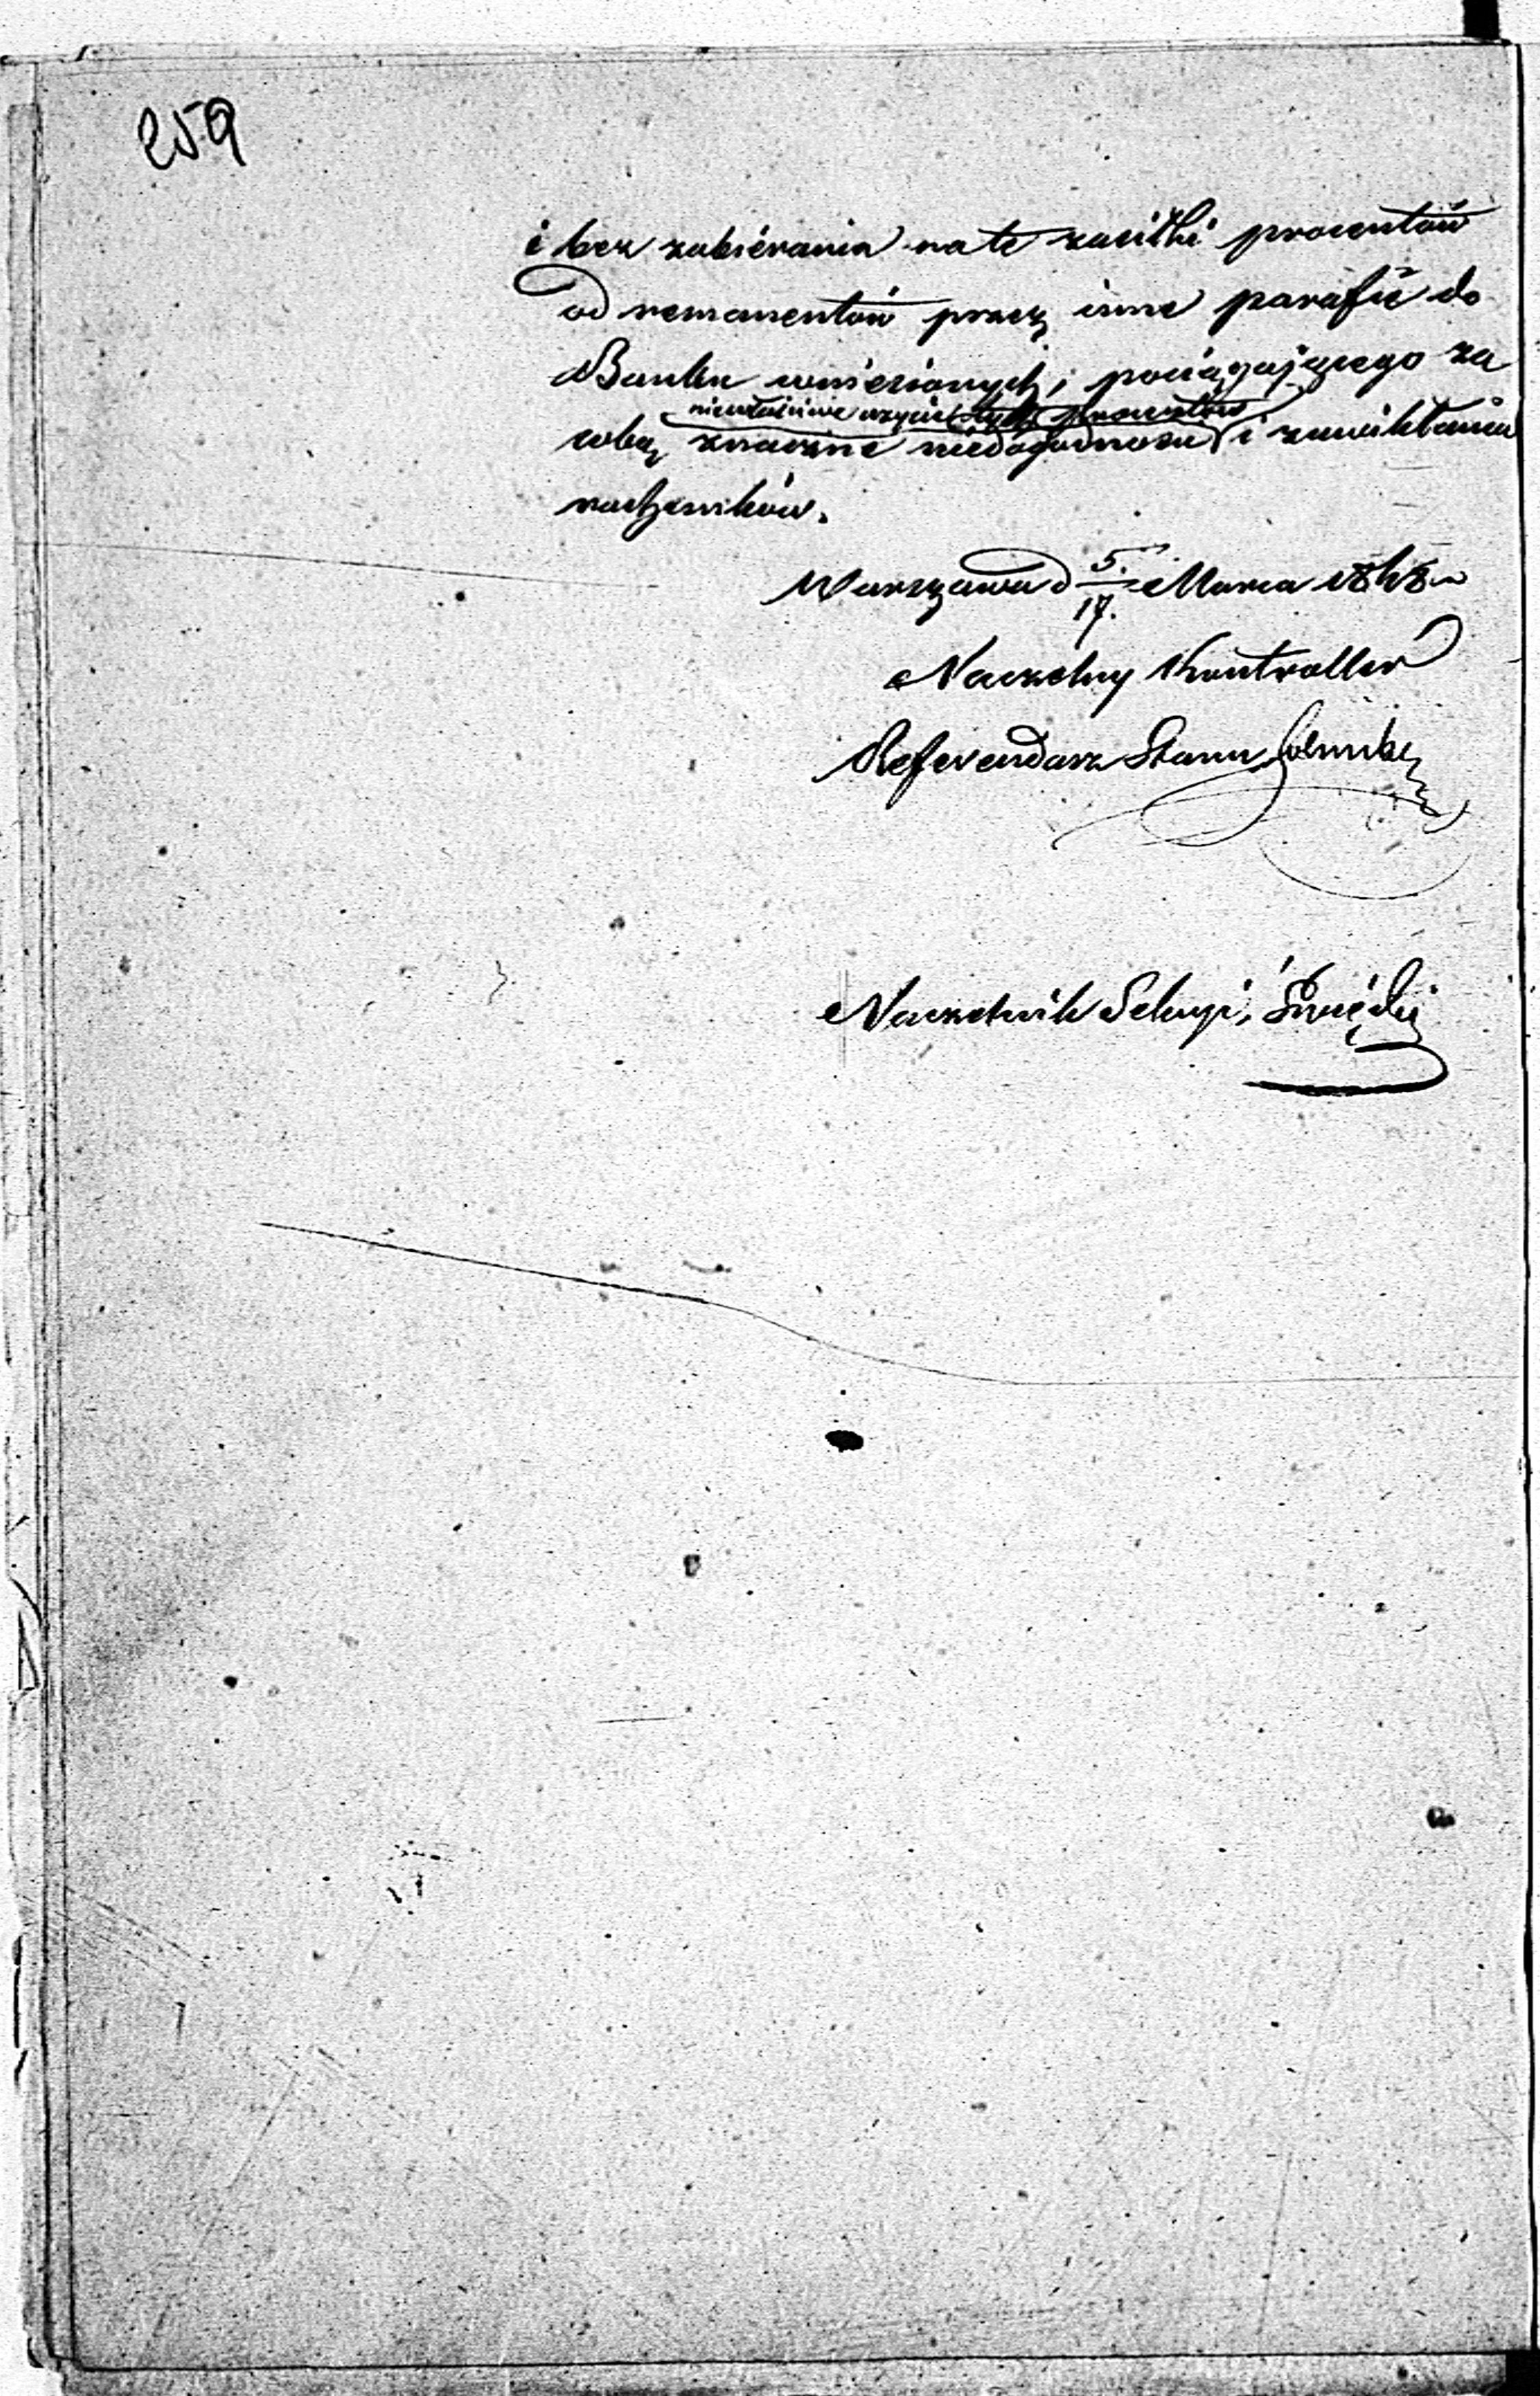 259
i bez zabiérania na te zasiłki procentów
od remanentów przez inne parafie do
Banku wniesionych, pociągającego za
niewłaściwe użycie tych procentów
sobą znaczne niedogodności i zawikłania
rachunków.
Warszawa d 5/17. Marca 1848 r
Naczelny Kontroller
Referendarz Stanu
Naczelnik Sekcyi,